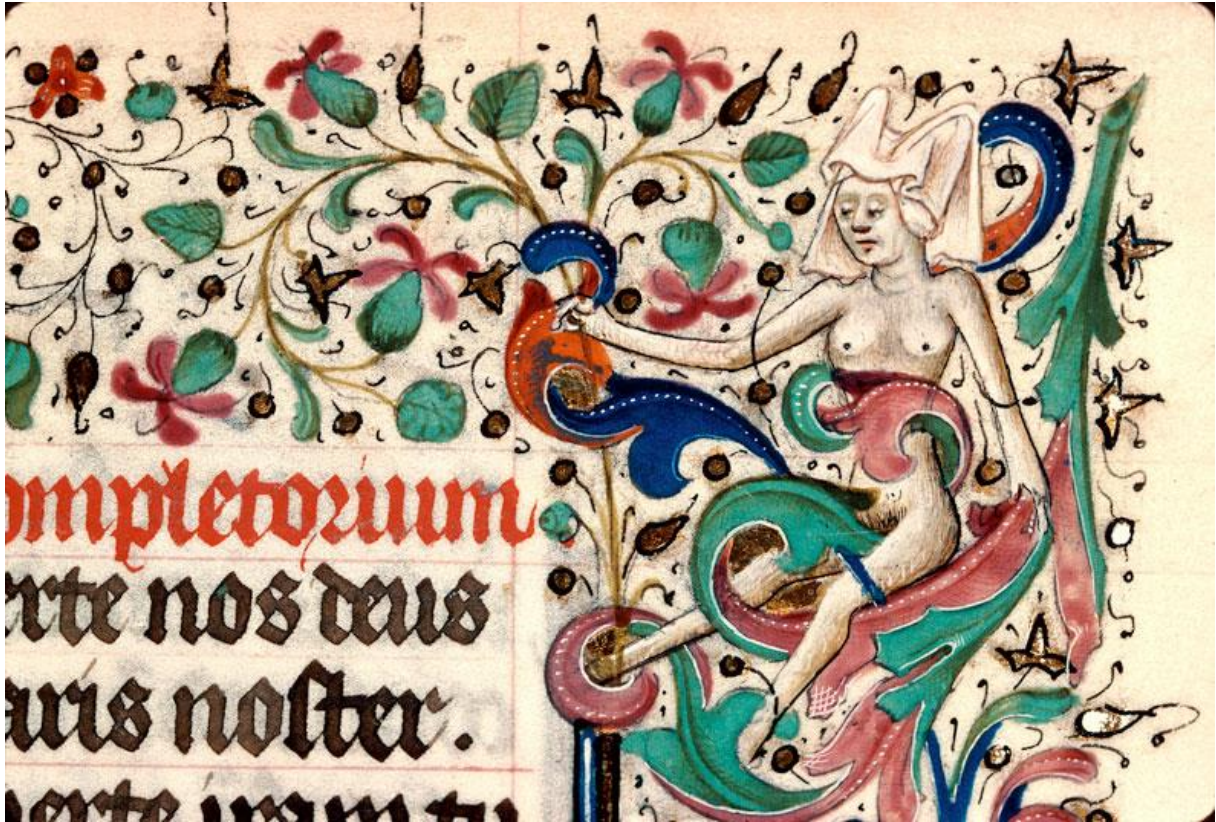 ompletorium
erte nos deus
aris noster.